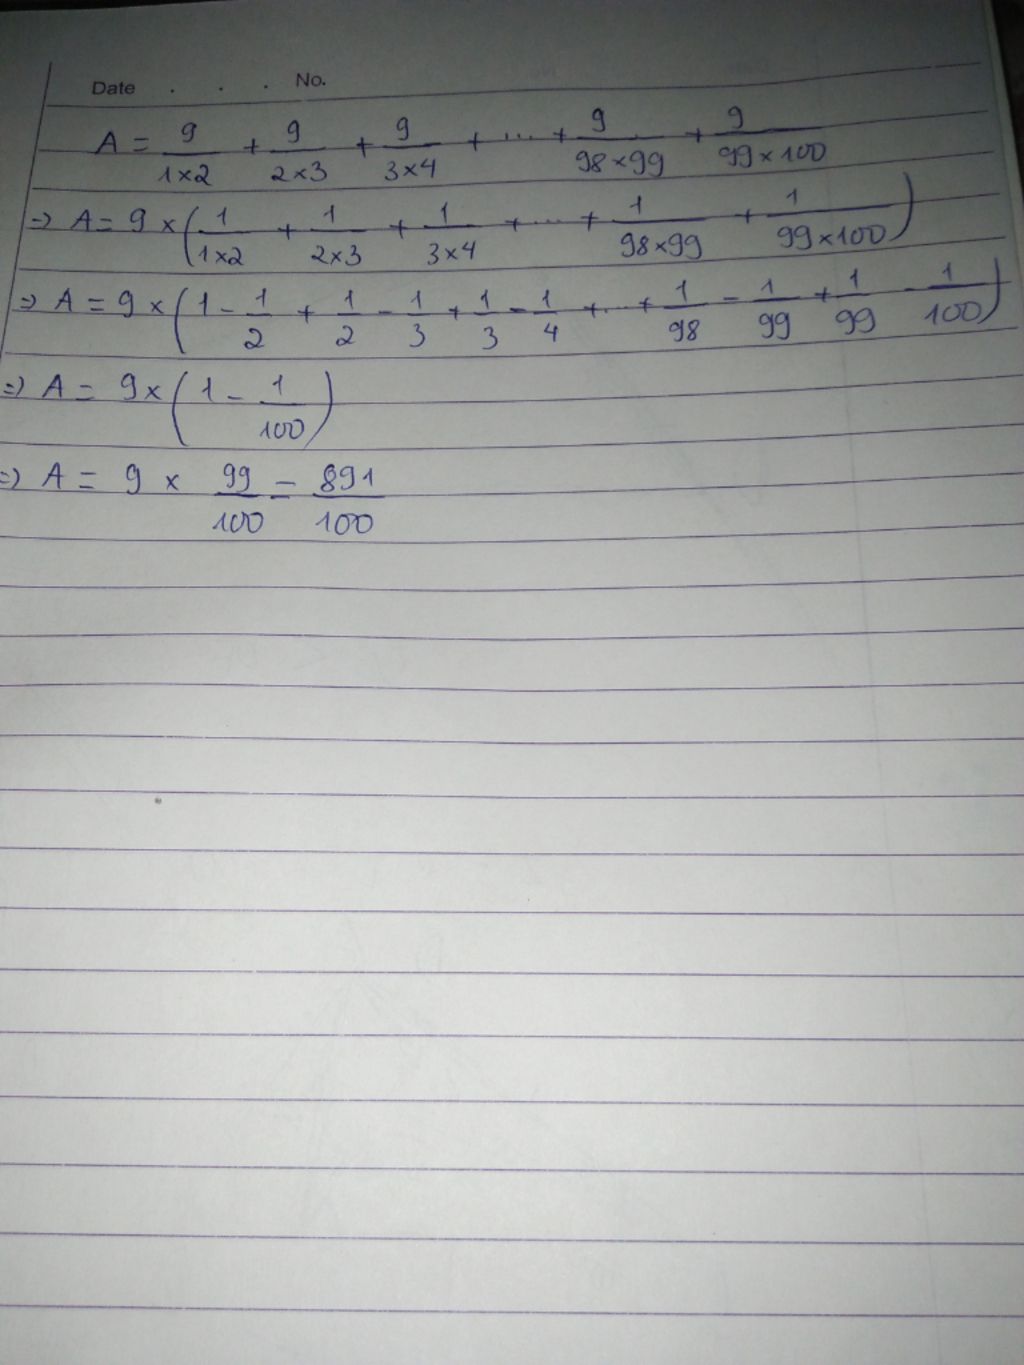 Date . . . No.
A = 9/1×2 + 9/2×3 + 9/3×4 + ... + 9/98×99 + 9/99×100
=> A = 9 × (1/1×2 + 1/2×3 + 1/3×4 + ... + 1/98×99 + 1/99×100)
=> A = 9 × (1 - 1/2 + 1/2 - 1/3 + 1/3 - 1/4 + ... + 1/98 - 1/99 + 1/99 - 1/100)
=> A = 9 × (1 - 1/100)
=> A = 9 × 99/100 = 891/100